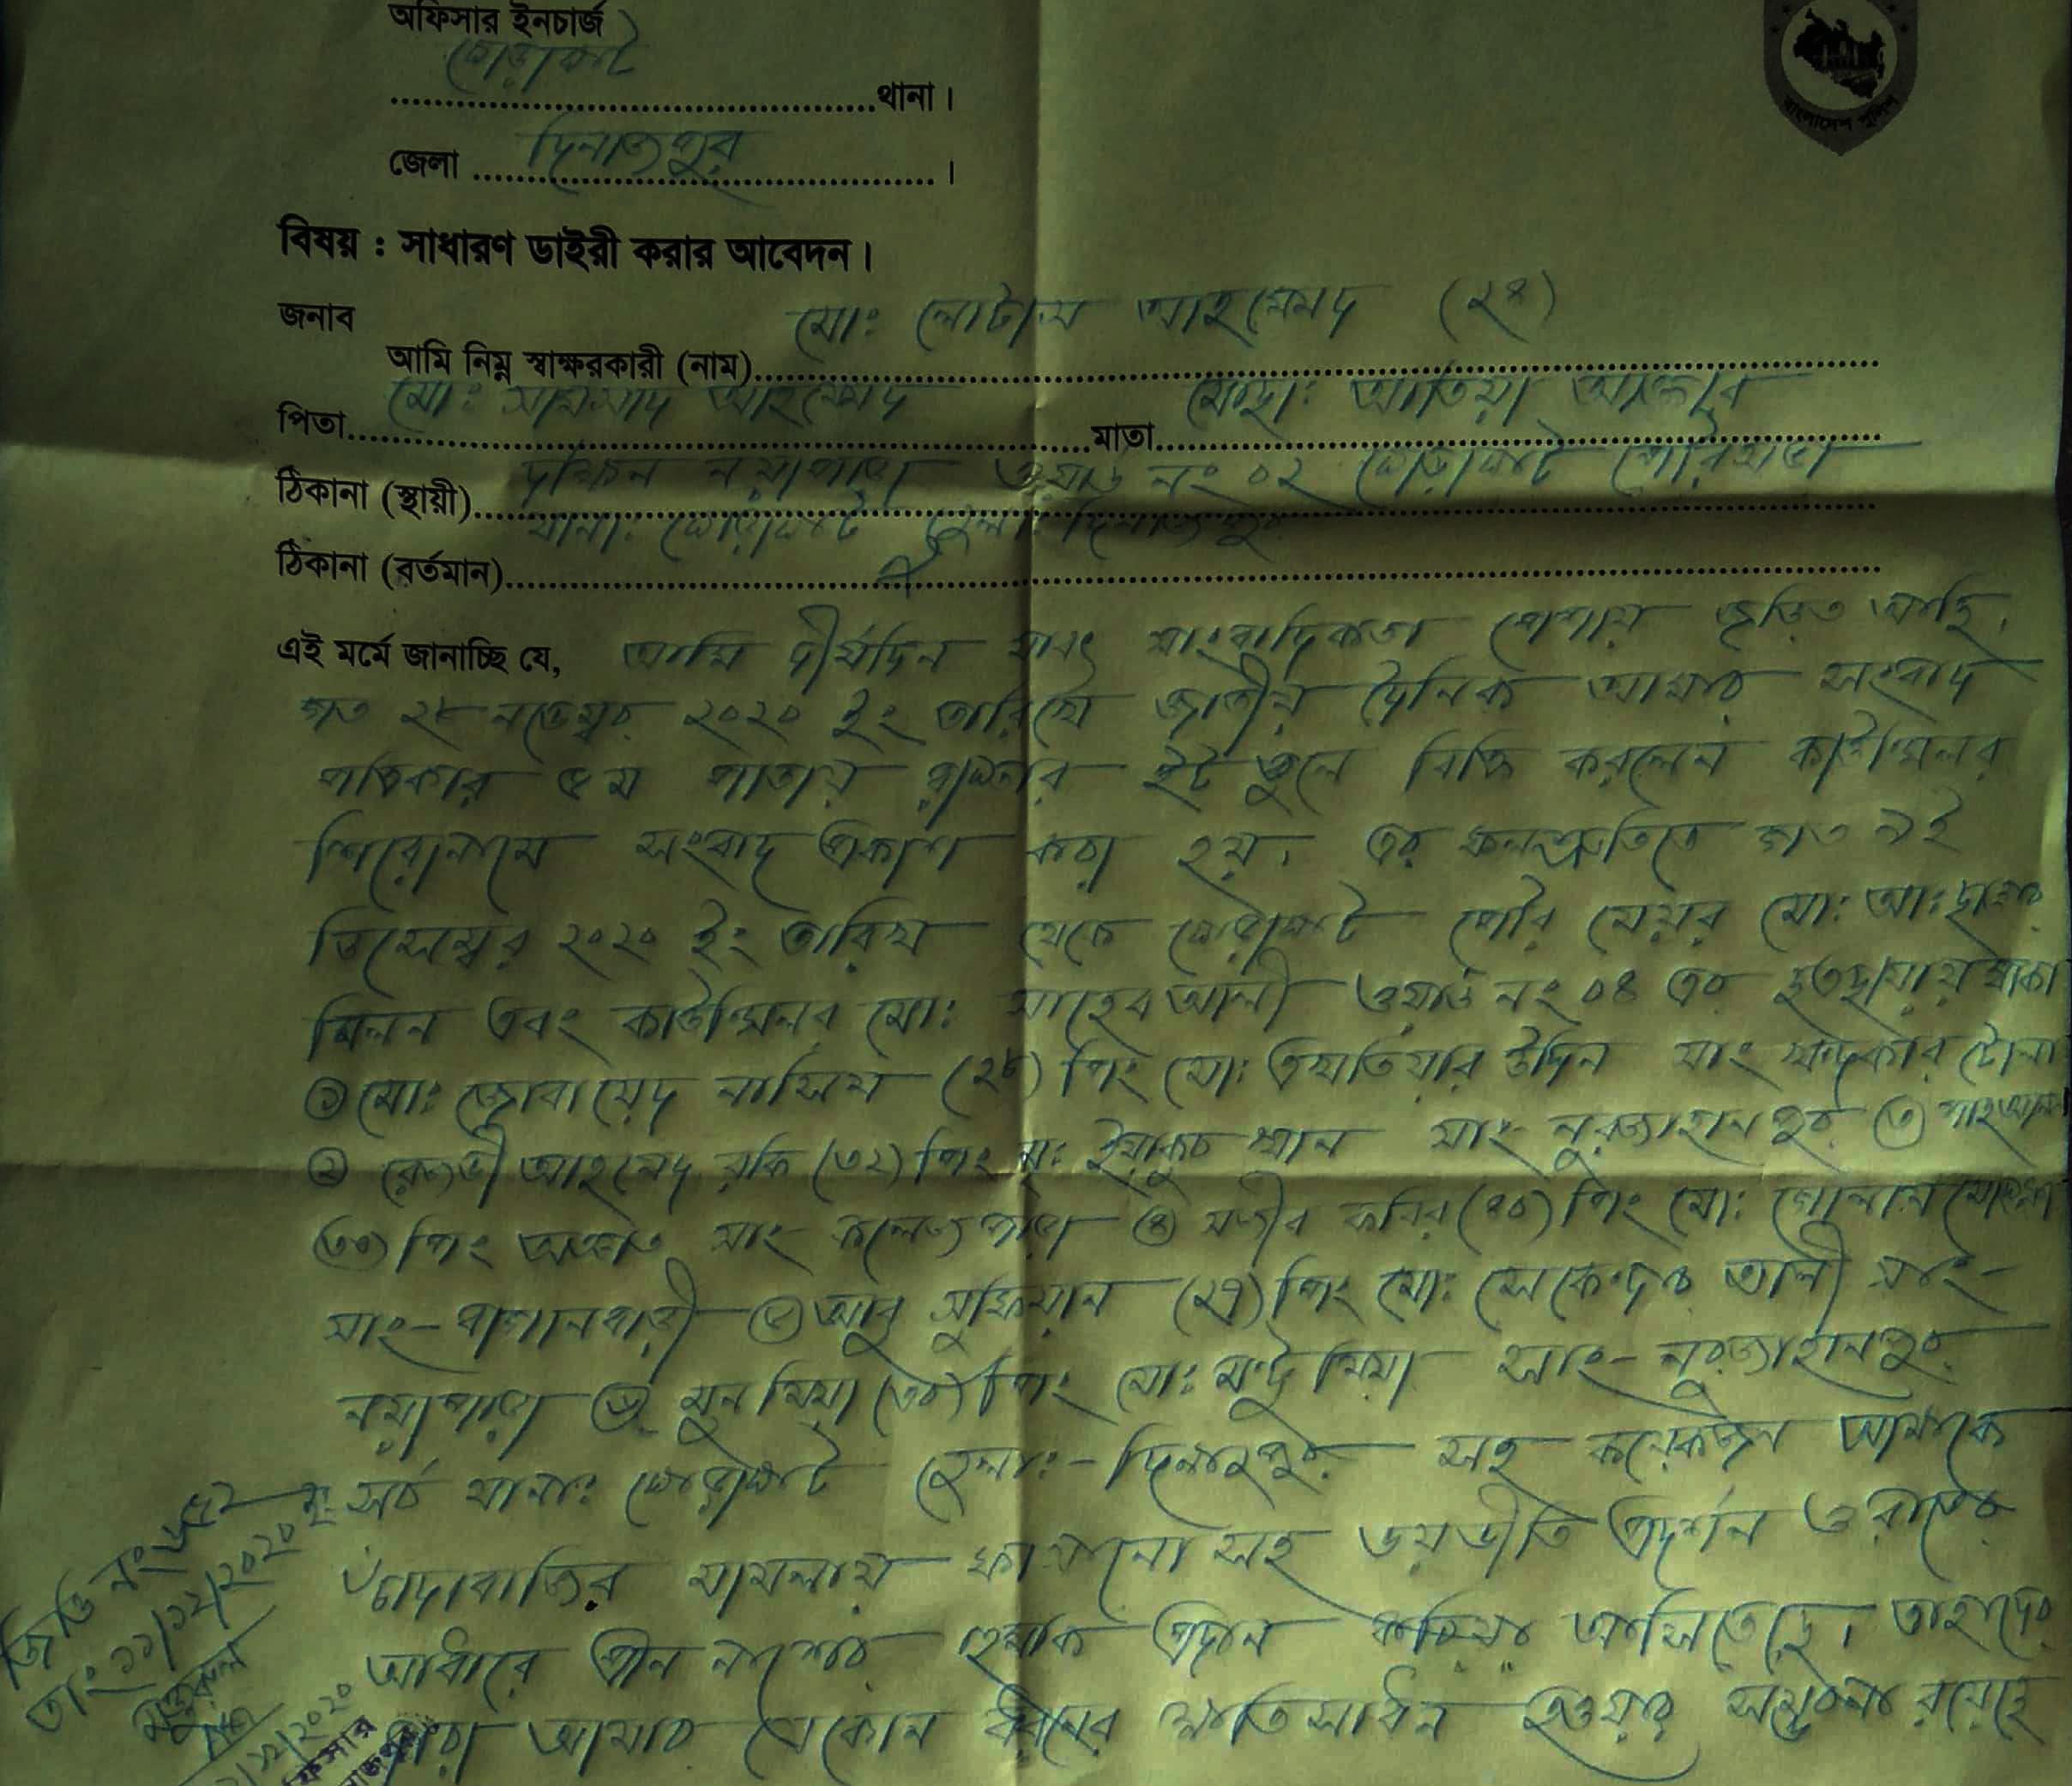 অফিসার ইনচার্জ
ঘোড়াঘাট
থানা।
বাংলাদেশ পুলিশ
জেলা দিনাজপুর ।
বিষয় : সাধারণ ডাইরী করার আবেদন।
জনাব
আমি নিম্ন স্বাক্ষরকারী (নাম) মো: লোটাস আহম্মেদ (২৪)
পিতা মো: সামসাদ আহম্মেদ মাতা মোছা: আতিয়া আক্তার
ঠিকানা (স্থায়ী) দক্ষিন নয়াপাড়া ওয়ার্ড নং ০২ ঘোড়াঘাট পৌরসভা
থানা: ঘোড়াঘাট জেলা: দিনাজপুর
ঠিকানা (বর্তমান) ঐ
এই মর্মে জানাচ্ছি যে, আমি দীর্ঘদিন যাবৎ সাংবাদিকতা পেশায় জড়িত আছি।
গত ২৮ নভেম্বর ২০২০ ইং তারিখে জাতীয় দৈনিক আমার সংবাদ
পত্রিকার ৫ম পাতায় রাস্তার ইট তুলে বিক্রি করলেন কাউন্সিলর
শিরোনামে সংবাদ প্রকাশ করা হয়। এর ফলশ্রুতিতে গত ৯ই
ডিসেম্বর ২০২০ ইং তারিখ থেকে ঘোড়াঘাট পৌর মেয়র মো: আ: ছাত্তার
মিলন এবং কাউন্সিলর মো: সাহেব আলী ওয়ার্ড নং ০৪ এর ছত্রছায়ায় থাকা
① মো: জোবায়েদ নাসিম (২৮) পিং মো: এখতিয়ার উদ্দিন সাং খন্দকার টোলা
② রেজভী আহমেদ রকি (৩২) পিং মৃ: ইয়াকুব খান সাং নুরজাহানপুর ③ শাহআলম
(৩০) পিং অজ্ঞাত সাং কলেজপাড়া ④ সজীব কবির (৪০) পিং মো: গোলাম মোস্তফা
সাং- বাগানবাড়ী ⑤ আবু সুফিয়ান (২৭) পিং মো: সেকেন্দার আলী সাং-
নয়াপাড়া ⑥ মুন মিয়া (৩০) পিং মো: মন্টু মিয়া সাং- নুরজাহানপুর
সর্ব থানা: ঘোড়াঘাট জেলা:- দিনাজপুর সহ কয়েকজন আমাকে
চাঁদাবাজির মামলায় ফাসানো সহ ভয়ভীতি প্রদর্শন ও রাতের
আধারে প্রান নাশের হুমকি প্রদান করিয়া আসিতেছে। তাহাদের
দ্বারা আমার যেকোন ধরনের ক্ষতিসাধন হওয়ার সম্ভবনা রয়েছে
জিডি নং ৬৫২
তাং ১১/১২/২০২০ ইং
/১২/২০২০